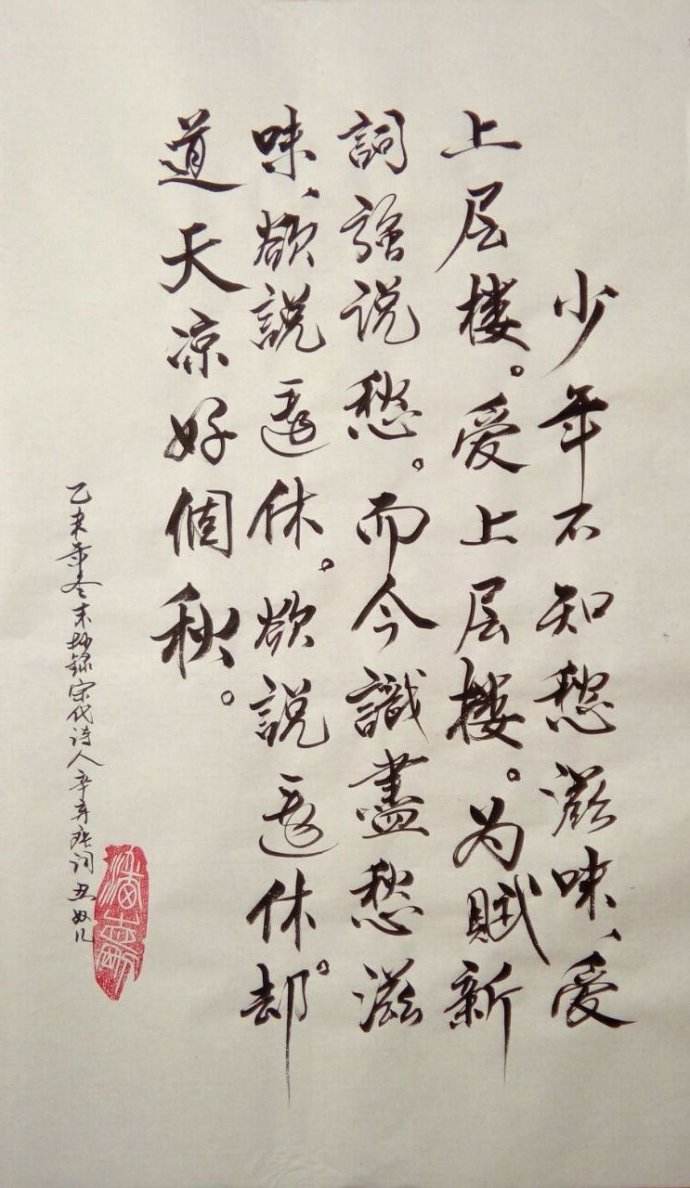 少年不知愁滋味、爱
上层楼。爱上层楼。为赋新
詞強说愁。而今識盡愁滋
味、欲説還休。欲説還休。却
道天凉好個秋。
乙未年冬末抄録宋代诗人辛弃疾词丑奴儿